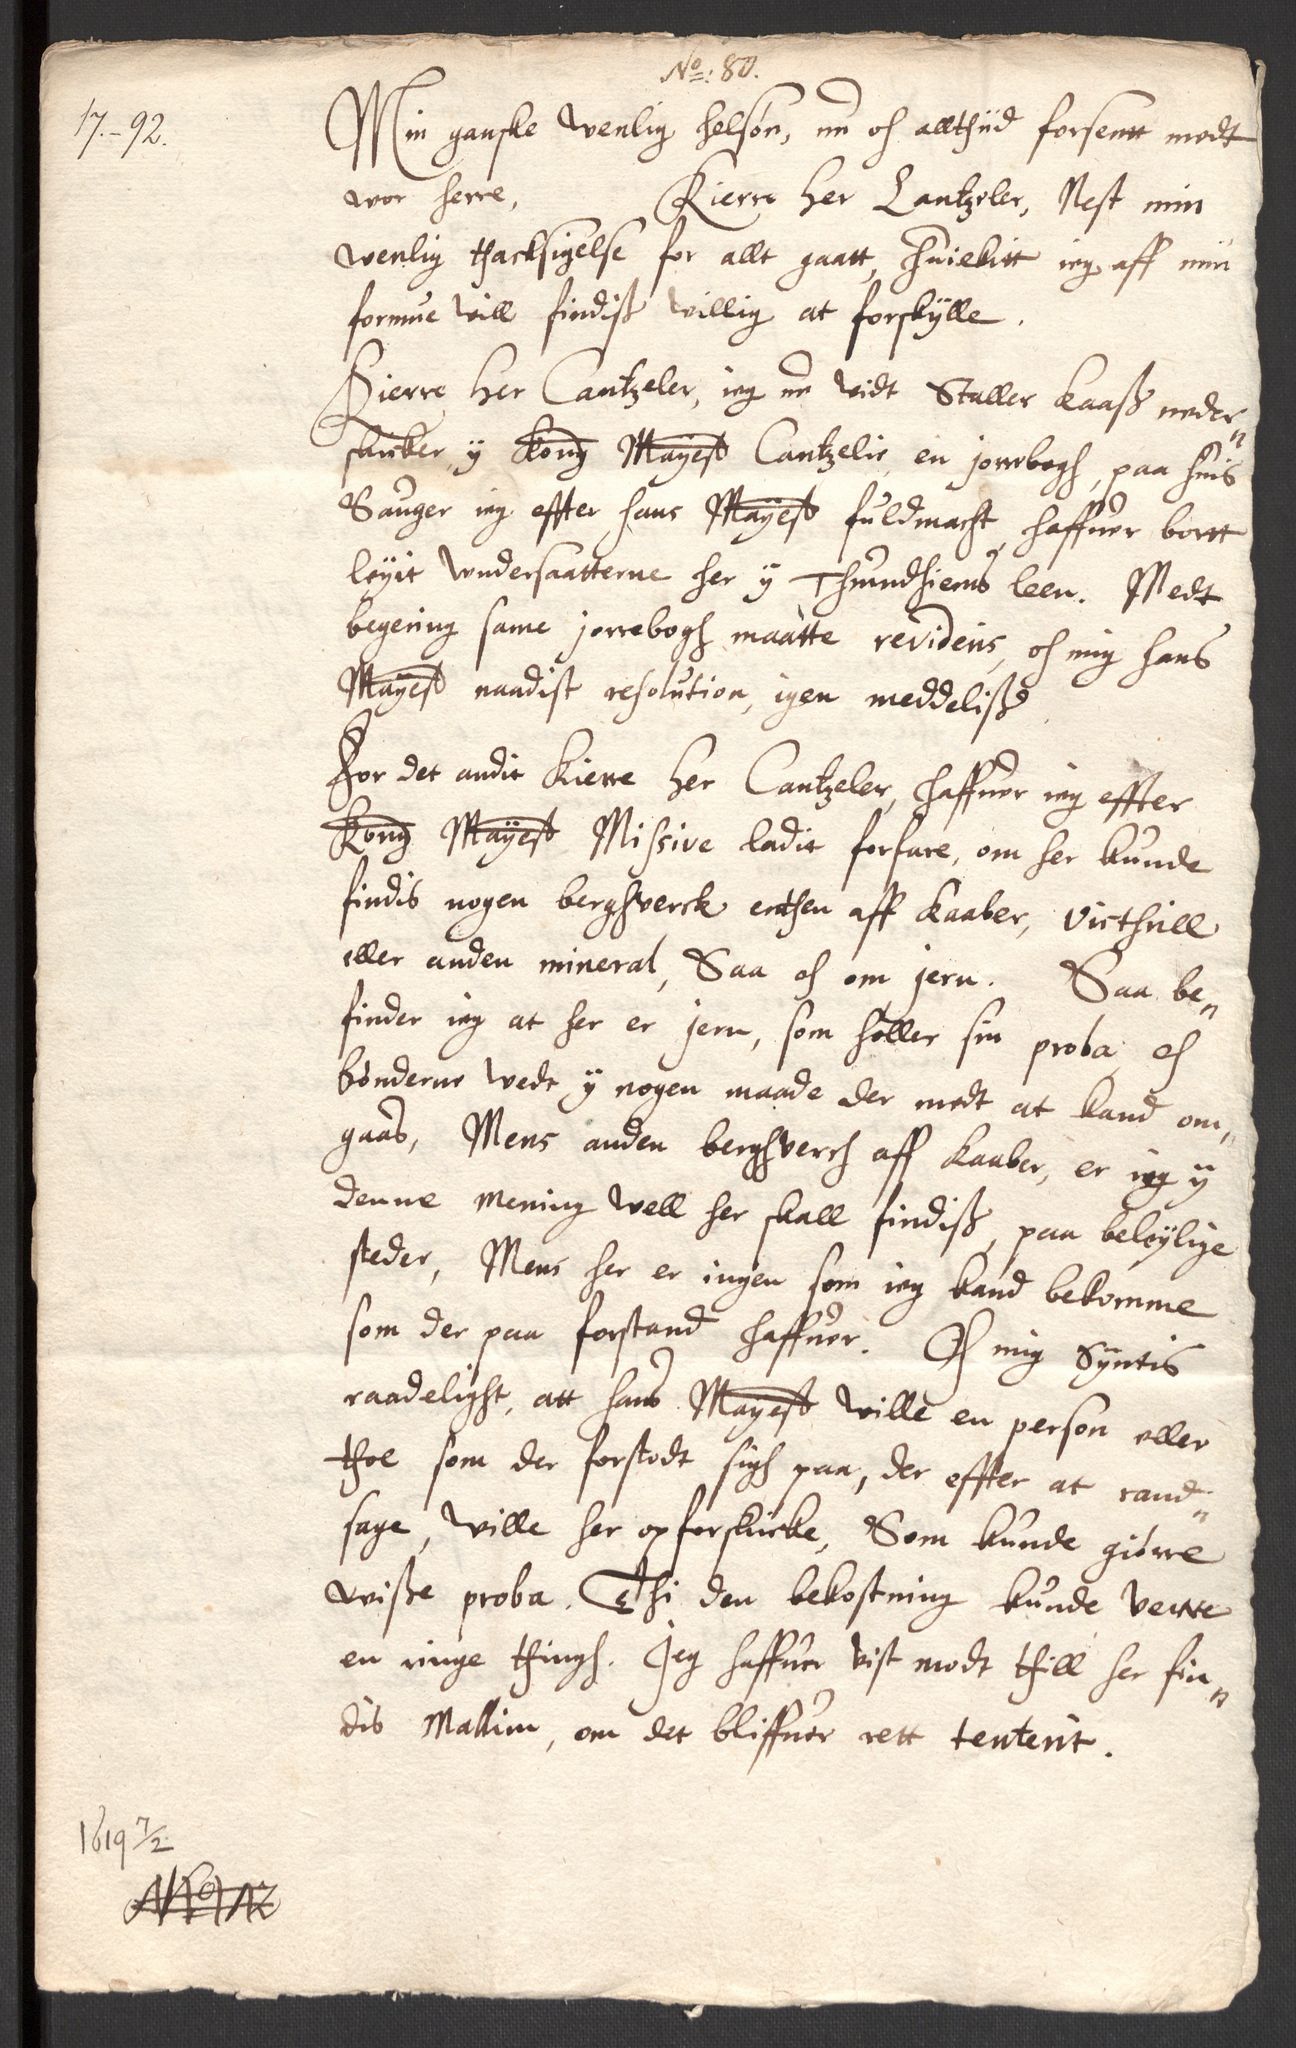 No: 80.
17.-92.
Min ganske venlig helsøn, nu och alltiid forsentt medt
wor herre, Kierre Her Cantzeler, Nest min
venlig thacksigelse for allt gaatt, huilckitt ieg aff min
formue will findiß villig at forskylle.
Kierre Her Cantzeler, ieg nu vidt Staller Kaaß neder„
skicker y Kong Mayest Cantzelie, en jorrbogh, paa huis
Sauger ieg effter hans Mayest fuldmacht, haffuer bortt
leyit wndersaatterne her y Thrundhiems leen. Medt
begering same jorrebogh maatte revideris, och mig hans
Mayest naadist resolution, igen meddeliß
For det andit Kierre Her Cantzeler, haffuer ieg effter
Kong Mayest Missive ladit forfare, om her kunde
findis nogen berghverck enthen aff Kaaber, victhrill
eller anden mineral, Saa och om jern. Saa be„
finder ieg at her er jern, som holler sin proba, och
bønderne wedt y nogen maade der medt at kand om„
gaas, Mens anden berghverch aff Kaaber, er ieg y
denne mening well her skall findiß, paa beleylige
steder, Mens her er ingen som ieg kand bekomme
som der paa forstand haffuer. Och mig Syntis
raadelight, att hans Mayest wille en person eller
thoe som der forstodt sigh paa, der effter at rand„
sage, wille her op forskicke, Som kunde giørre
wisse proba. Thi den bekostning kunde verre
en ringe thingh. Jeg haffuer vist modt thill her fin„
dis Mallim, om det bliffuer rett tenterit.
1619 7/2.